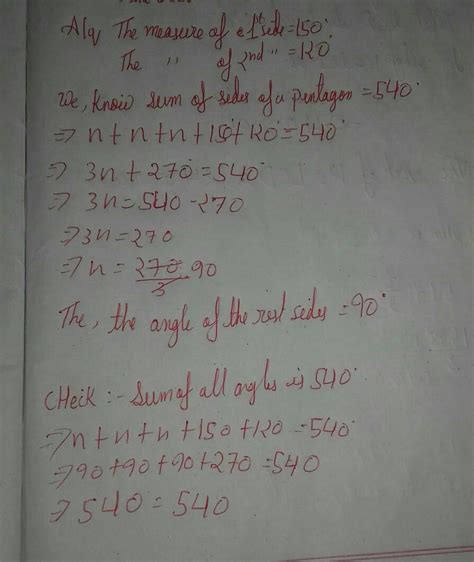 A/q The measure of 1st side = 150°.
The " of 2nd " = 120
We, know sum of sides of a pentagon = 540°
⇒ n + n + n + 150 + 120 = 540°
⇒ 3n + 270° = 540°
⇒ 3n = 540 - 270
⇒ 3n = 270
⇒ n = 270/3 90
The, the angle of the rest sides = 90°
CHeck :- Sum of all angles is 540°
⇒ n + n + n + 150 + 120 = 540°
⇒ 90 + 90 + 90 + 270 = 540
⇒ 540 = 540